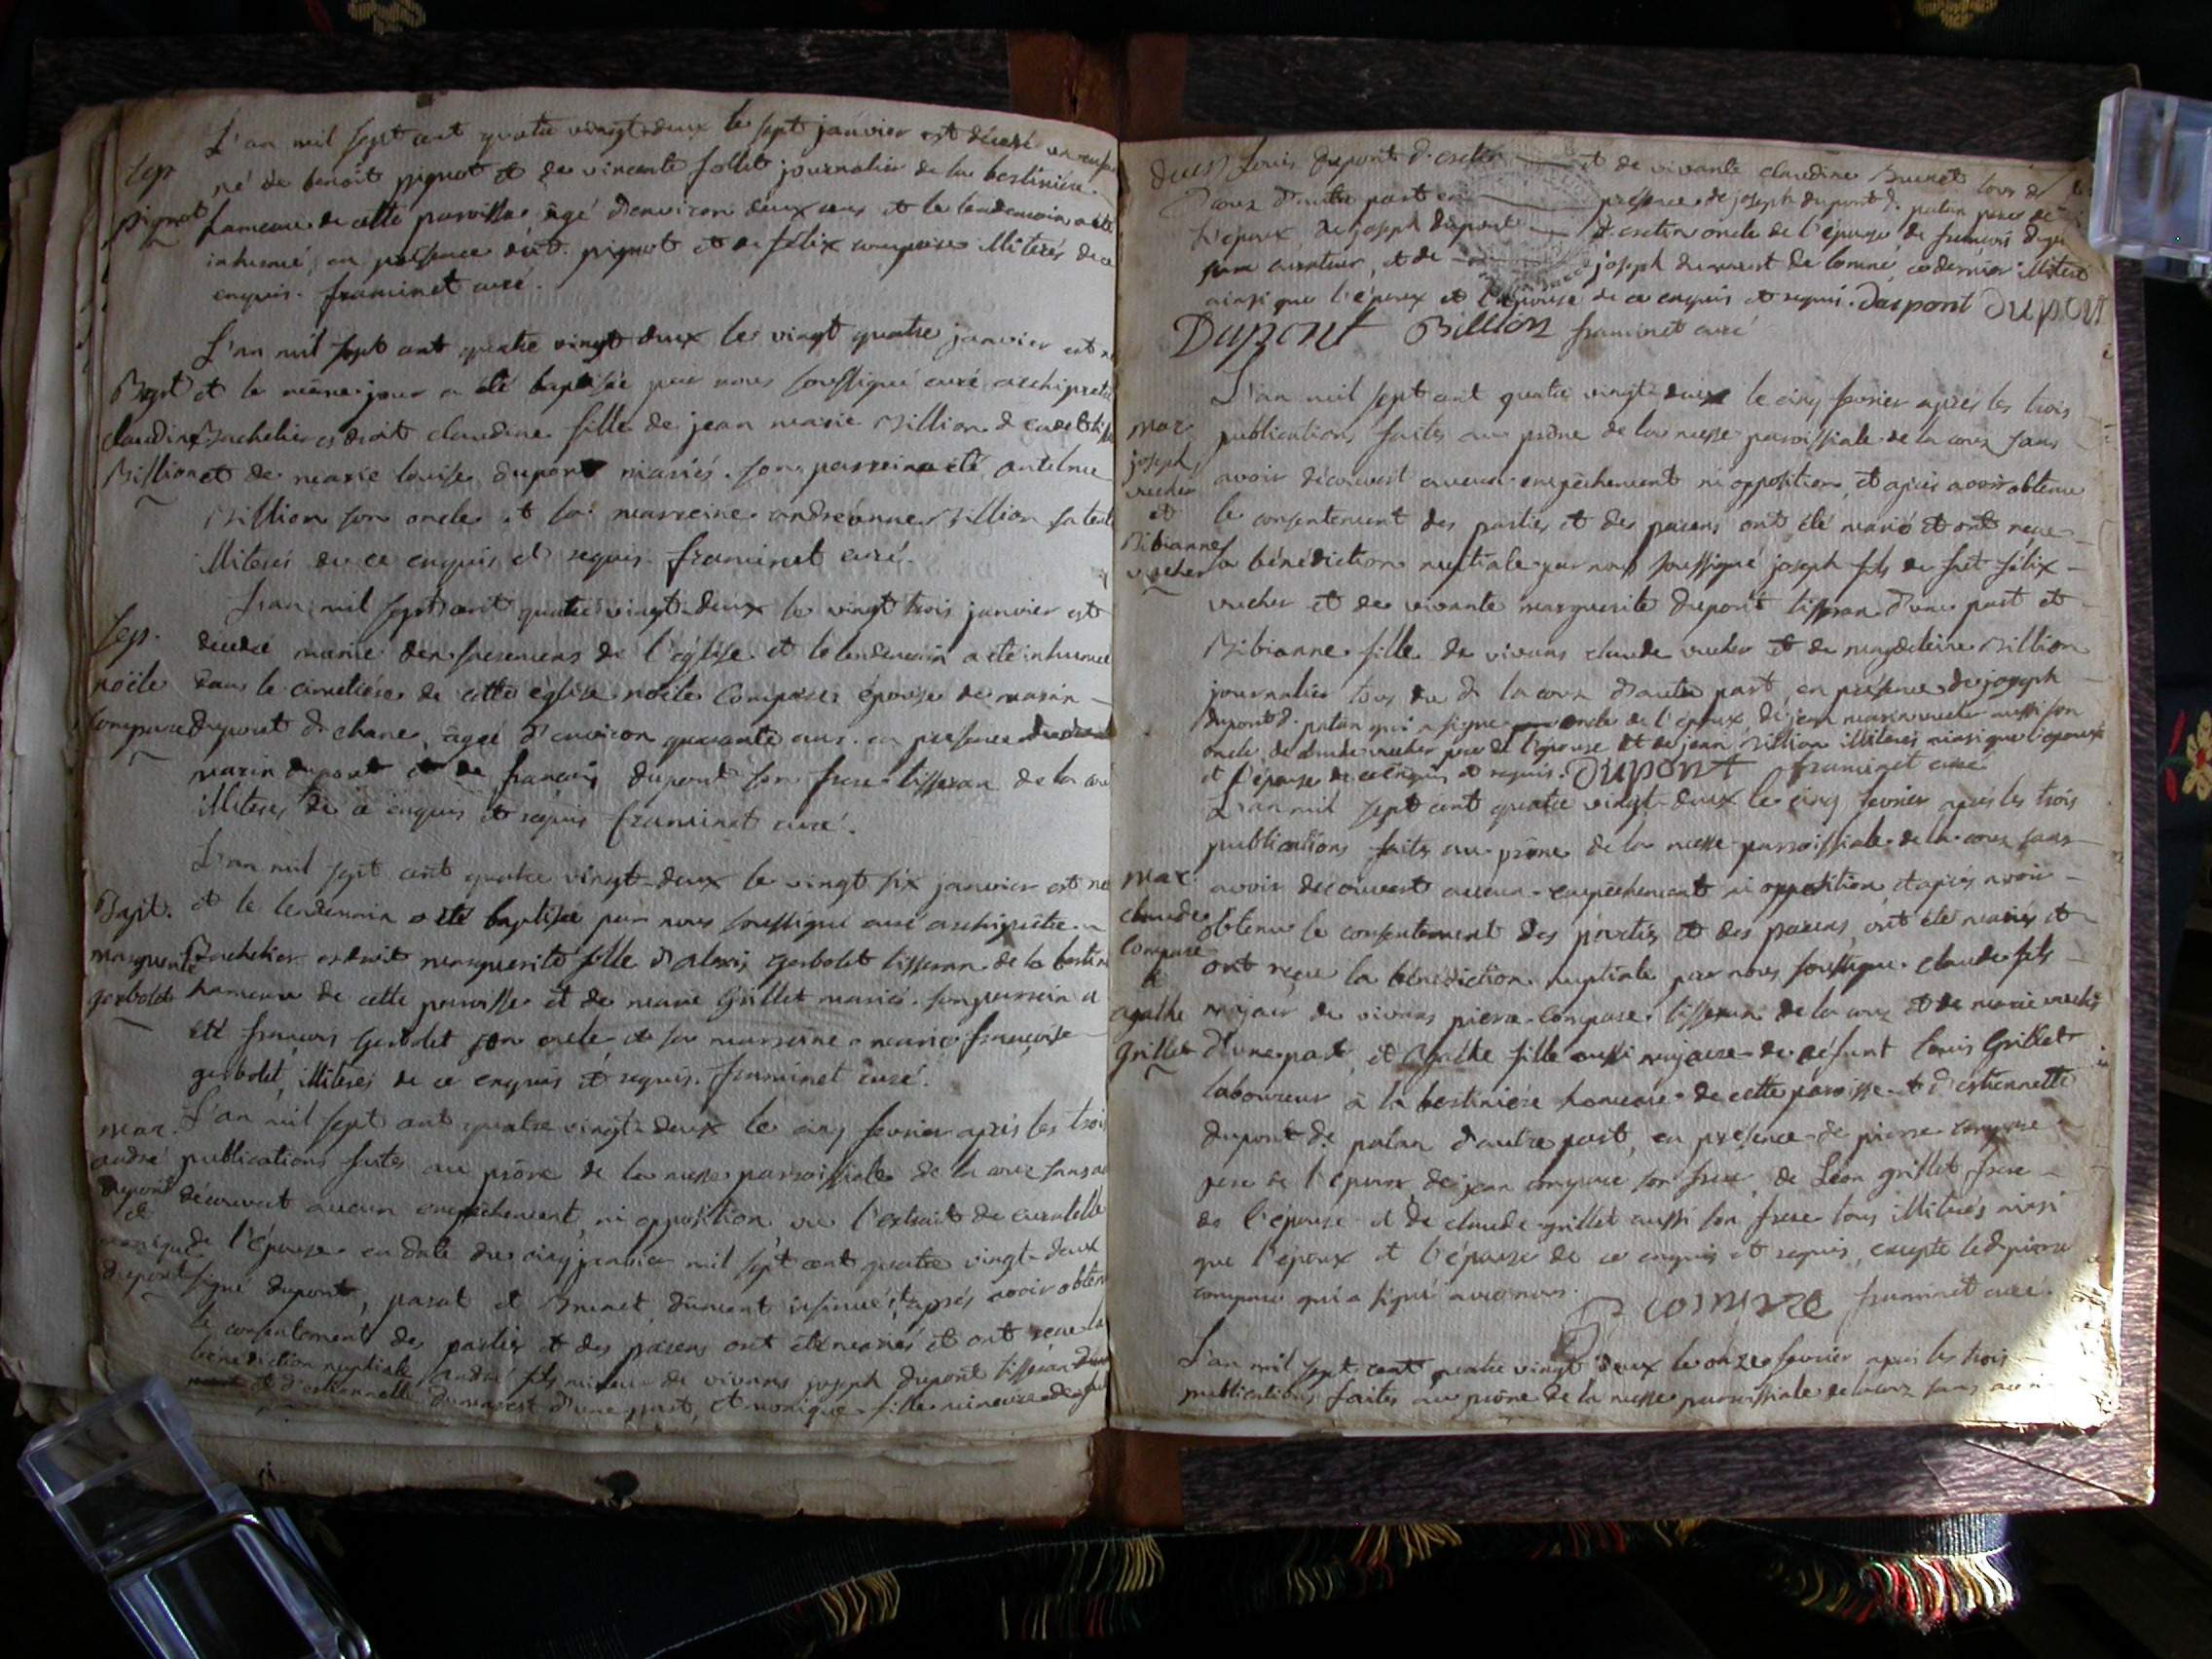 L'an mil sept cent quatre vingt deux le sept janvier est décedé
Sep.
né de benoit pignot et de vincente follet journalier de la bestinière
pignot
hameau de cette paroisse âgé d'environ deux ans et le lendemain a été
inhumé, en présence dud. pignot et de félix compare illiterés de ce
enquis. framinet curé.
L'an mil sept cent quatre vingt deux le vingt quatre janvier est
Bapt.
et le même jour a été baptisée par nous soussigné curé archipretre
claudine
Bachelier es droit claudine fille de jean marie Billion
Billion
et de marie louise dupont mariés. son parrein a été antelme
Billion son oncle et sa marreine andréanne Billion sa tante
illiterés de ce enquis et requis. framinet curé.
L'an mil sept cent quatre vingt deux le vingt trois janvier est
Sep.
decedée munie des sacremens de l'église et le lendemain a été inhumée
noële
dans le cimetière de cette église noële compare épouse de marin
compare
dupont d. chane, âgée d'environ quarante ans. en présence
marin dupont et de françois dupont son frere tisseran de la
illiterés de ce enquis et requis framinet curé.
L'an mil sept cent quatre vingt deux le vingt six janvier est
Bapt.
et le lendemain a été baptisée par nous soussigné curé archiprêtre
marguerite
Bachelier es droit marguerite fille d'alexis gerbolet tisseran de la
gerbolet
hameau de cette paroisse et de marie Grillet mariés. son parrein a
été françois gerbolet son oncle et sa marreine marie françoise
gerbolet, illiterés de ce enquis et requis. framinet curé.
mar.
L'an mil sept cent quatre vingt deux le cinq fevrier après les trois
andré
publications faites au prône de la messe paroissiale de la couz sans
dupont
découvert aucun empêchement ni opposition vu l'extrait de curatelle
et
monique
de l'épouse en date du cinq janvier mil sept cent quatre vingt deux
dupont
signé dupont, pasat et Brunet, dûment insinué, et après avoir obtenu
le consentement des parties et des parens ont été mariés et ont recu la
bénédiction nuptiale andré fils mineur de vivans joseph dupont tisseran
et d'estiennette d'une part, et monique fille mineure de
Louis dupont d. et de vivante claudine Brunet tous de
Couz d'autre part en présence de joseph dupont d. patan pere de
l'époux de joseph dupont oncle de l'épouse de françois
son curateur, et de joseph ce dernier illiteré
ainsi que l'époux et l'épouse de ce enquis et requis. dupont dupont
Dupont Billion framinet curé
L'an mil sept cent quatre vingt deux le cinq fevrier après les trois
mar.
publications faites au prône de la messe paroissiale de la couz sans
joseph
avoir découvert aucun empêchement ni opposition, et après avoir obtenu
vucher
et
le consentement des parties et des parens ont été mariés et ont recue
Bibianne
vucher
la bénédiction nuptiale par nous soussigné joseph fils de fut félix
vucher et de vivante marguerite dupont tisseran d'une part et
Bibianne fille de vivans claude vucher et de magdeleine Billion
journalier tous de la couz d'autre part, en présence de joseph
dupont d. patan qui a signé oncle de l'époux, de jean marin vucher aussi son
oncle de claude vucher pere de l'épouse et de jean Billion illiterés ainsi que l'époux
et l'épouse de ce enquis et requis. Dupont framinet curé
L'an mil sept cent quatre vingt deux le cinq fevrier après les trois
publications faites au prône de la messe paroissiale de la couz sans
mar.
avoir découvert aucun empêchement ni opposition, et après avoir
claude
obtenu le consentement des parties et des parens, ont été mariés et
compare
ont reçue la bénédiction nuptiale par nous soussigné claude fils
et
agathe
majeur de vivans pierre compare tisseran de la couz et de marie vucher
Grillet
d'une part, et agathe fille aussi majeure de défunt Louis Grillet
laboureur à la bestinière hameau de cette paroisse et d'estiennette
dupont d. patan d'autre part, en présence de pierre compare
pere de l'époux, de jean compare son frere, de Léon grillet frere
de l'épouse et de claude grillet aussi son frere tous illiterés ainsi
que l'époux et l'épouse de ce enquis et requis, excepté led. pierre
compare qui a signé avec nous. P compare framinet curé.
L'an mil sept cent quatre vingt deux le onze fevrier après les trois
publications faites au prône de la messe paroissiale de la couz sans avoir